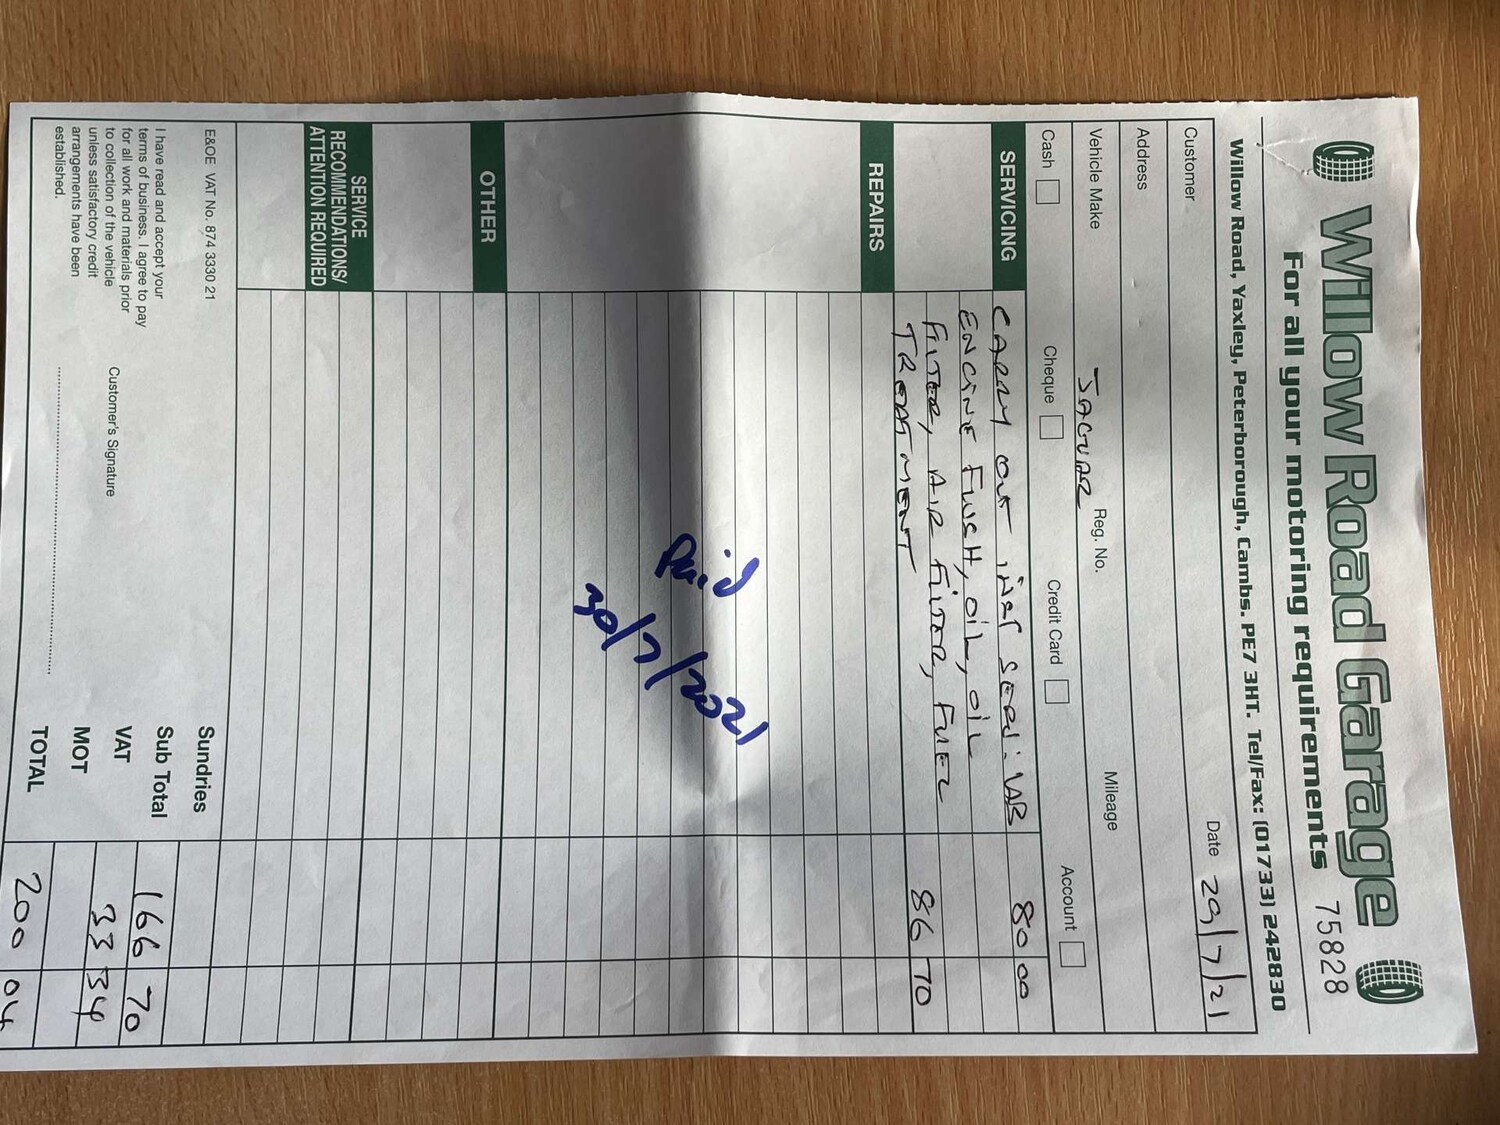 Willow Road Garage
For all your motoring requirements 75828
Willow Road, Yaxley, Peterborough, Cambs. PE7 3HT. Tel/Fax: (01733) 242830
Customer Date 29/7/21
Address
Vehicle Make JAGUAR Reg. No. Mileage
Cash Cheque Credit Card Account
SERVICING CARRY OUT SERV: LAB 80 00
ENGINE FLUSH, OIL, OIL
FILTER, AIR FILTER, FUEL
TREATMENT 86 70
REPAIRS
Paid
30/7/2021
OTHER
SERVICE
RECOMMENDATIONS/
ATTENTION REQUIRED
E&OE VAT No. 874 3330 21
Sundries
I have read and accept your
terms of business. I agree to pay
for all work and materials prior
to collection of the vehicle
unless satisfactory credit
arrangements have been
established.
Customer's Signature
Sub Total 166 70
VAT 33 34
MOT
TOTAL 200 04